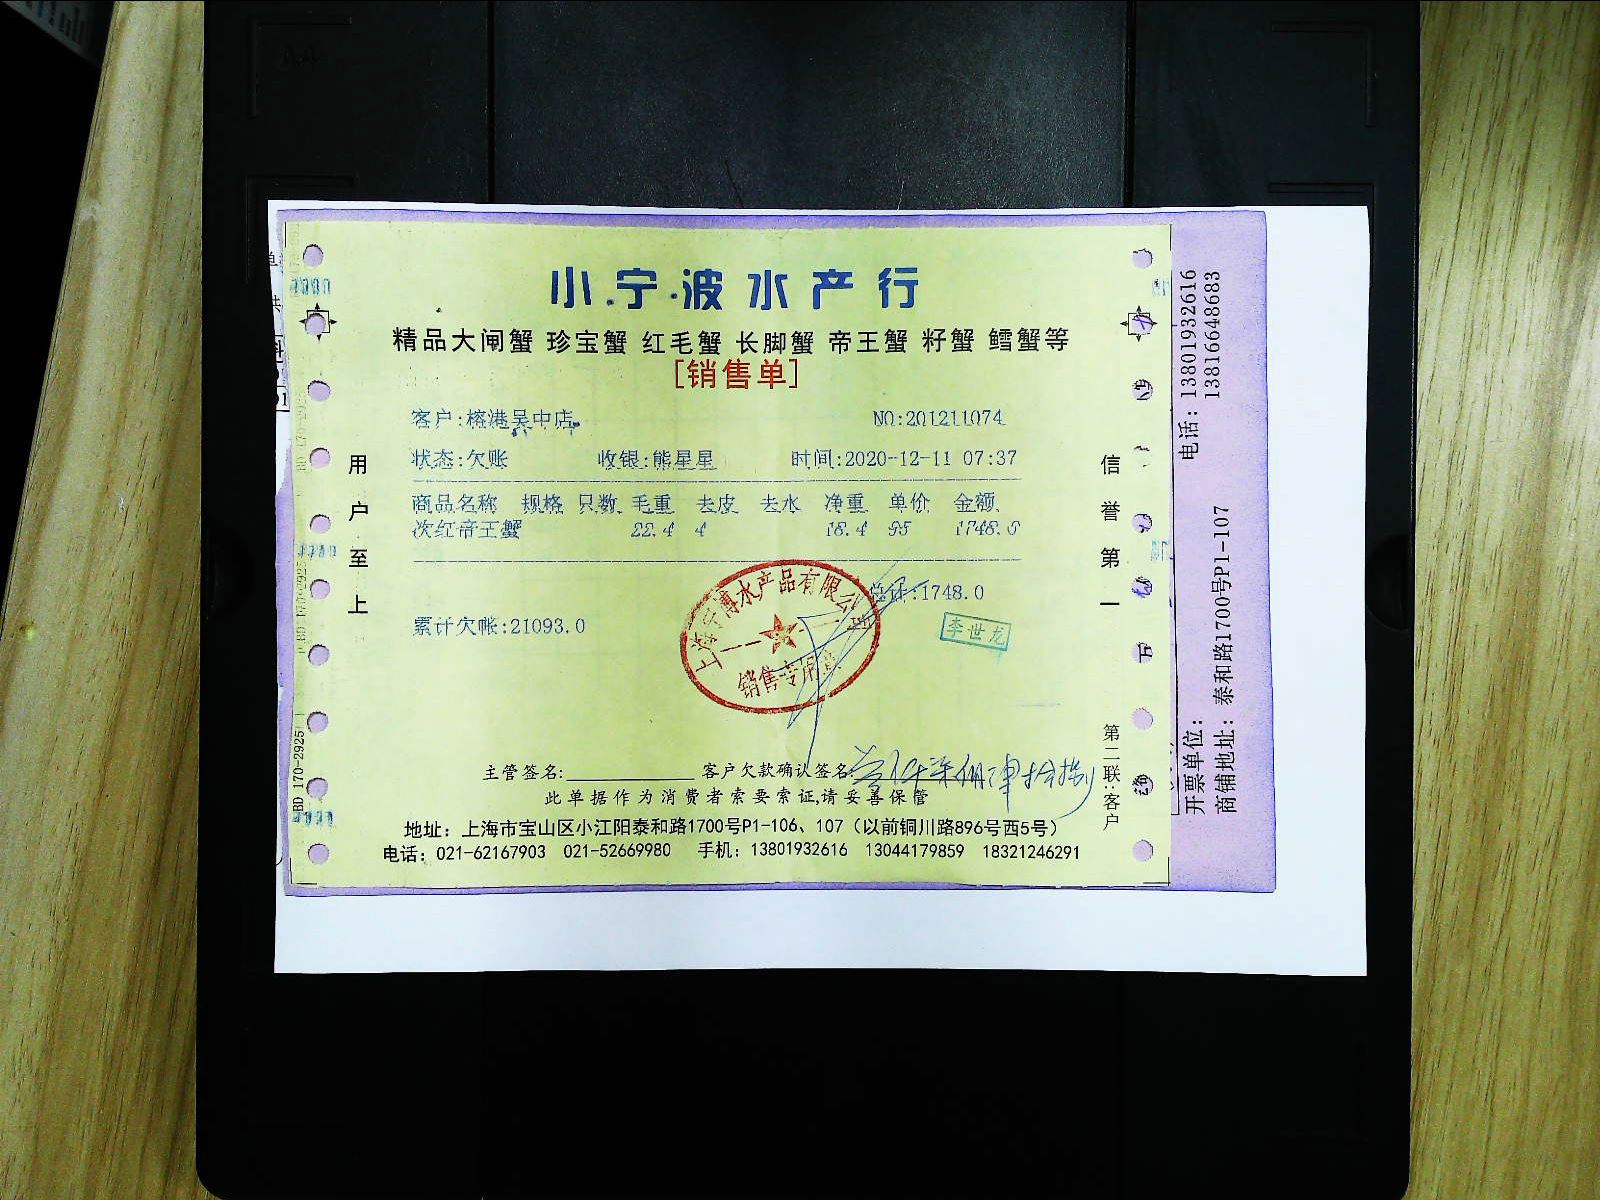 小宁波水产行
精品大闸蟹 珍宝蟹 红毛蟹 长脚蟹 帝王蟹 籽蟹 鳕蟹等
[销售单]
客户:榕港吴中店 NO:201211074
状态:欠账 收银:熊星星 时间:2020-12-11 07:37
商品名称 规格 只数 毛重 去皮 去水 净重 单价 金额
次红帝王蟹 22.4 4 18.4 95 1748.0
总计:1748.0
累计欠帐:21093.0
上海宁博水产品有限公司
销售专用章
李世龙
主管签名: 客户欠款确认签名:
此单据作为消费者索要索证,请妥善保管
地址：上海市宝山区小江阳泰和路1700号P1-106、107（以前铜川路896号西5号）
电话：021-62167903 021-52669980 手机：13801932616 13044179859 18321246291
用户至上
信誉第一
第二联:客户
BD 170-2925
电话：13801932616
13816648683
开票单位：
商铺地址：泰和路1700号P1-107